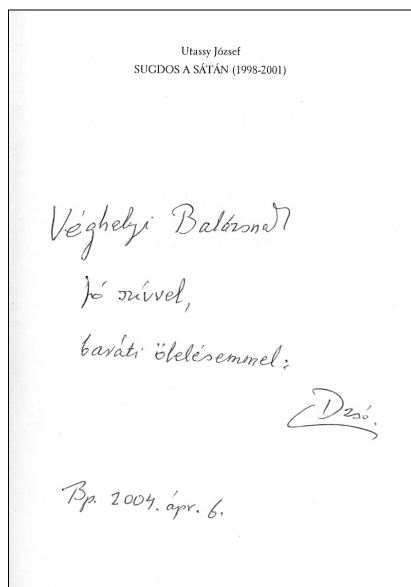 Utassy József
SUGDOS A SÁTÁN (1998-2001)
Véghelyi Balázsnak
Jó szívvel,
baráti ölelésemmel:
Dzsó.
Bp. 2004. ápr. 6.